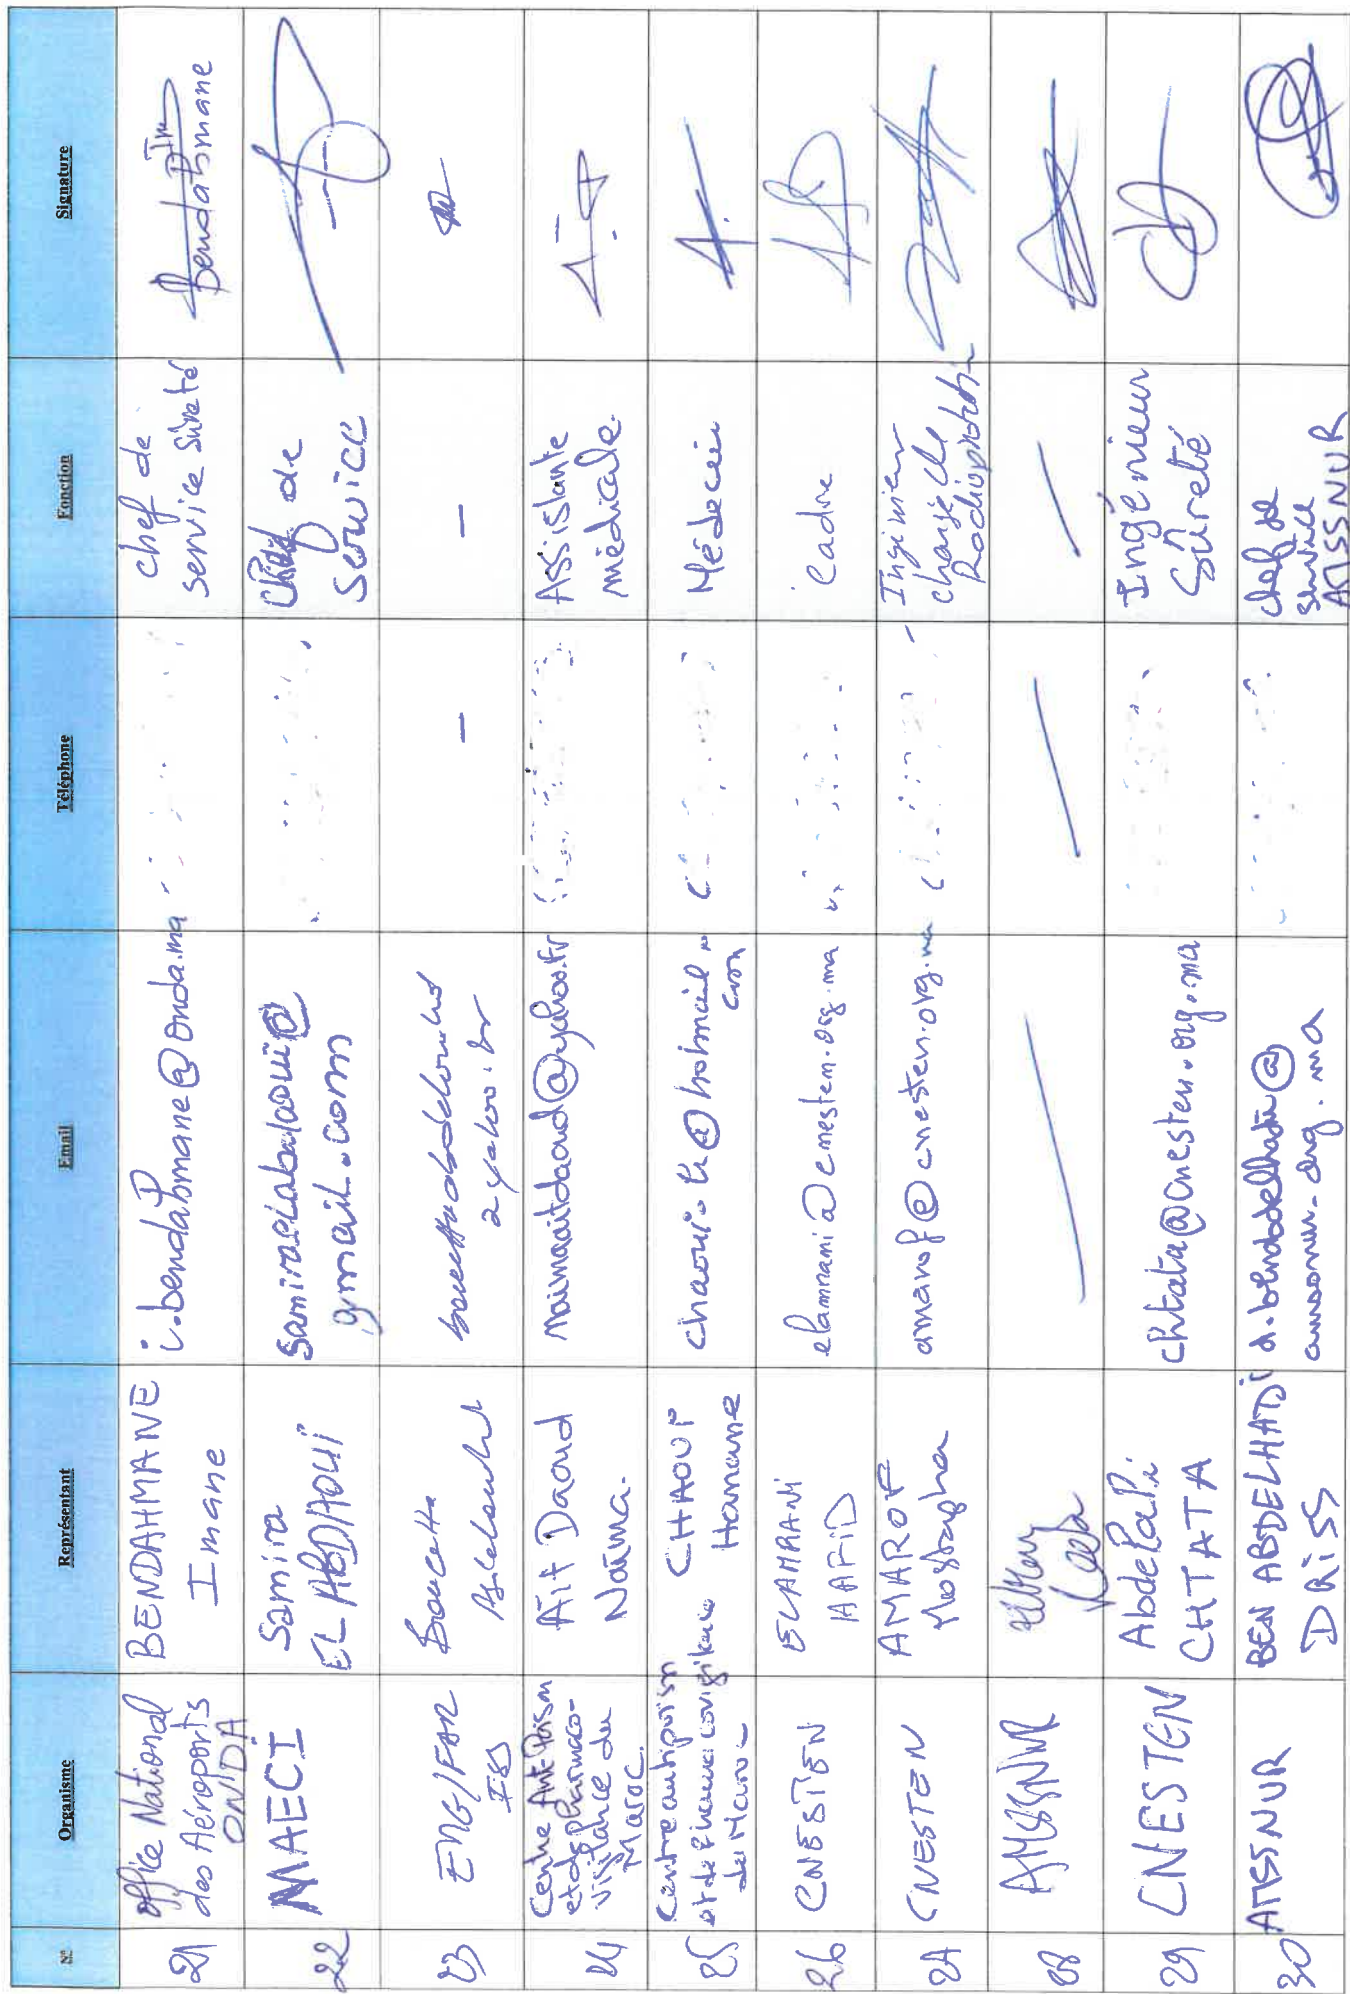 N° Organisme Représentant Email Téléphone Fonction Signature
21
Office National
des Aéroports
ONDA
BENDAHMANE
Imane
i.bendahmane@onda.ma
chef de
service sûreté
Bendahmane Im
22
MAECI
Samira
EL ABDAOUI
samiraelabdaoui@
gmail.com
Chef de
Service
23
EMG/FAR
Boucetta
2 yahoo.fr
-
-
24
Centre Anti Poison
et de pharmaco-
vigilance du
Maroc.
Aït Daoud
Naïma.
naimaaitdaoud@yahoo.fr
Assistante
médicale.
25
Centre antipoison
et de Pharmacovigilance
du Maroc
CHAOUI
Hanane
@hotmail.
com
Médecin
26
CNESTEN
ELAMRANI
HAFID
elamrani@cnesten.org.ma
Cadre
27
CNESTEN
AMAROF
Mostapha
amarof@cnesten.org.ma
Ingénieur
chargé de
Radioprotection
28
AMSSNUR
29
CNESTEN
Abdelali
CHTATA
chtata@cnesten.org.ma
Ingénieur
Sûreté
30
AMSSNUR
BEN ABDELHADI
DRISS
d.benabdelhadi@
amssnur.org.ma
chef de
service
AMSSNUR